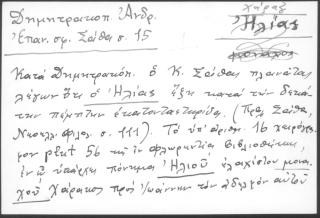 Δημητρακοπ. Ἀνδρ.
Ἐπαν. σφ. Σάθα σ. 15
Χάραξ
Ἠλίας
μοναχός
Κατὰ Δημητρακόπ. ὁ Κ. Σάθας πλανᾶται
λέγων ὅτι ὁ Ἠλίας ἤκμ κατὰ τὴν δεκά-
την πέμπτην ἑκατονταετηρίδα. (Πρβ. Σάθα,
Νεοελλ. φιλολ. σ. 111). Τὸ ὑπ' ἀριθμ. 16 χειρόγρα-
φον plut 56 τῆς ἐν Φλωρεντίᾳ βιβλιοθήκης,
ἐν ᾧ ὑπάρχει πόνημα Ἠλιοῦ ἐλαχίστου μονα-
χοῦ Χάρακος πρὸς Ἰωάννην τὸν ἀδελφὸν αὐτοῦ